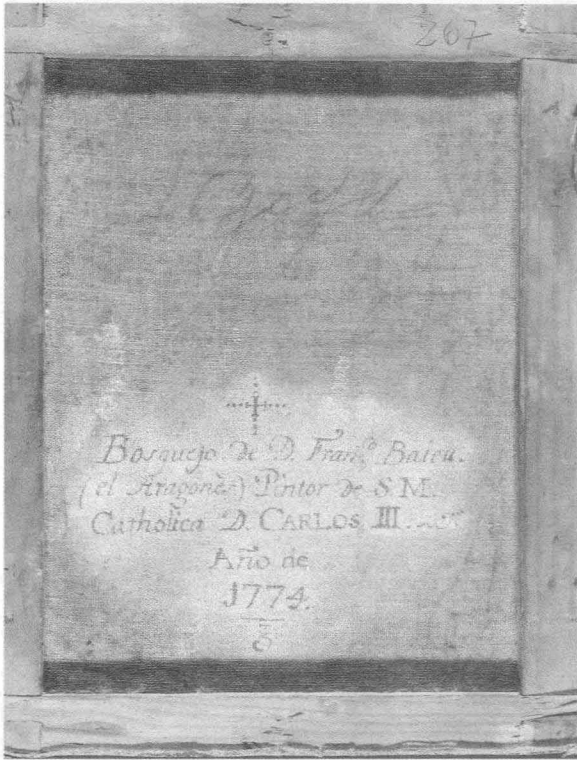 267
Goya
Bosquejo de D. Franco. Baieu.
(el Aragonès) Pintor de S. M.
Catholica D. CARLOS III.
Año de
1774.